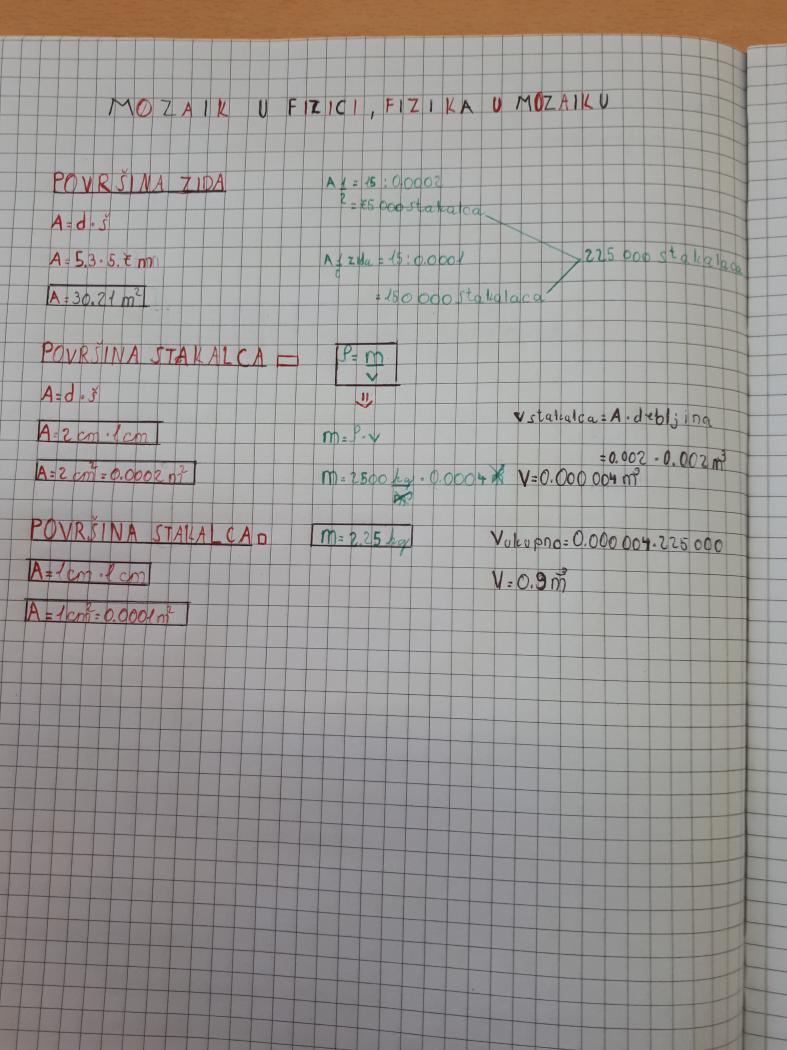 MOZAIK U FIZICI, FIZIKA U MOZAIKU
POVRŠINA ZIDA
A=d·š
A=5.3·5.7 m
A=30.21 m²
A 1/2 = 15 : 0.0002
= 75 000 stakalca
A 1/2 zida = 15 : 0.0001
= 150 000 stakalaca
225 000 stakalaca
POVRŠINA STAKALCA
A=d·š
A=2 cm·1 cm
A=2 cm²=0.0002 m²
POVRŠINA STAKALCA
A=1 cm·1 cm
A=1 cm²=0.0001 m²
ρ=m/V
m=ρ·V
m=2500 kg/m³·0.0004
m=2.25 kg
V stakalca=A·debljina
=0.002·0.002 m³
V=0.000 004 m³
V ukupno=0.000 004·225 000
V=0.9 m³